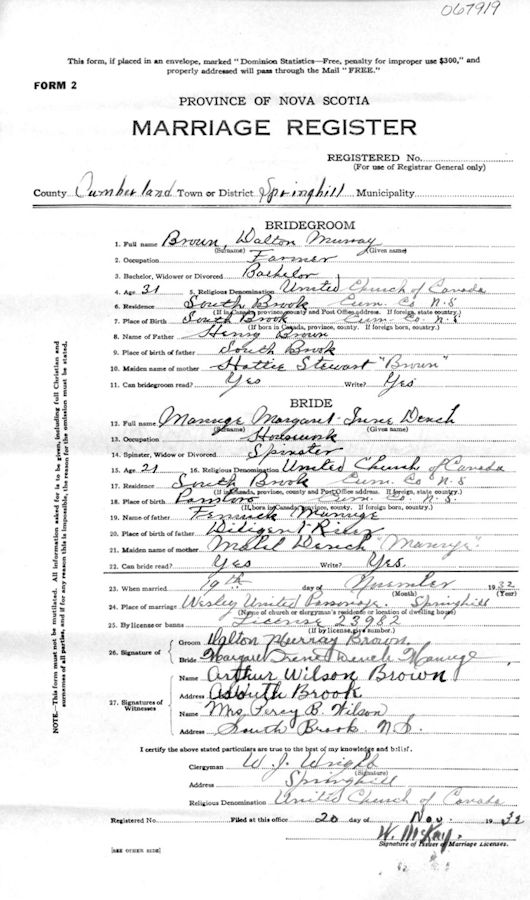 067919
This form, if placed in an envelope, marked "Dominion Statistics—Free, penalty for improper use $300," and
properly addressed will pass through the Mail "FREE."
FORM 2
PROVINCE OF NOVA SCOTIA
MARRIAGE REGISTER
REGISTERED No.
(For use of Registrar General only)
County Cumberland Town or District Springhill Municipality
BRIDEGROOM
1. Full name Brown, Walton Murray
(Surname) (Given name)
2. Occupation Farmer
3. Bachelor, Widower or Divorced Bachelor
4. Age 31 5. Religious Denomination United Church of Canada
6. Residence South Brook Cum. Co N.S
(If in Canada, province, county and Post Office address. If foreign, state country.)
7. Place of Birth South Brook Cum. Co N.S
(If born in Canada, province, county. If foreign born, country.)
8. Name of Father Henry Brown
9. Place of birth of father South Brook
10. Maiden name of mother Hattie Stewart "Brown"
11. Can bridegroom read? Yes Write? Yes
BRIDE
12. Full name Manuge Margaret Irene Dench
(Surname) (Given name)
13. Occupation Housewk
14. Spinster, Widow or Divorced Spinster
15. Age 21 16. Religious Denomination United Church of Canada
17. Residence South Brook Cum. Co N.S
(If in Canada, province, county and Post Office address. If foreign, state country.)
18. Place of birth Parrsboro Cum. Co N.S
(If born in Canada, province, county. If foreign born, country.)
19. Name of father Manuge
20. Place of birth of father Diligent River
21. Maiden name of mother Mabel Dench "Manuge"
22. Can bride read? Yes Write? Yes.
23. When married 19th day of November 1932
(Month) (Year)
24. Place of marriage Wesley United Parsonage Springhill
(Name of church or clergyman's residence or location of dwelling house)
25. By license or banns License 23982
(If by license, give number.)
26. Signature of Groom Walton Murray Brown
Bride Margaret Irene Dench Manuge
27. Signatures of Witnesses
Name Arthur Wilson Brown
Address South Brook
Name Mrs. Percy B. Wilson
Address South Brook N.S.
I certify the above stated particulars are true to the best of my knowledge and belief.
Clergyman W. J. Wright
(Signature)
Address Springhill
Religious Denomination United Church of Canada
Registered No. Filed at this office 20 day of Nov. 1932
W. McKay.
Signature of Issuer of Marriage Licenses.
[SEE OTHER SIDE]
NOTE.—This form must not be mutilated. All information asked for is to be given, including full Christian and
surnames of all parties, and if for any reason this is impossible, the reason for the omission must be stated.